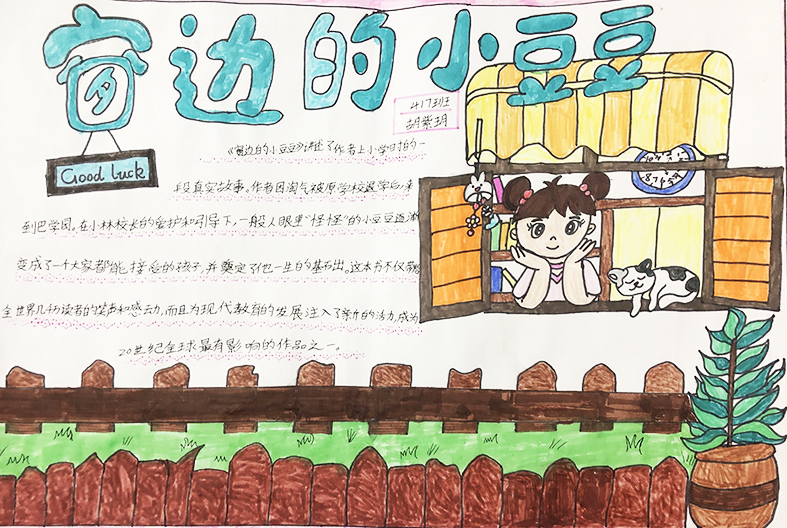 窗边的小豆豆
417班
胡紫玥
Good luck
《窗边的小豆豆》讲述了作者上小学时的一
段真实故事。作者因淘气被原学校退学后,来
到巴学园。在小林校长的爱护和引导下,一般人眼里"怪怪"的小豆豆逐渐
变成了一个大家都能接受的孩子,并奠定了他一生的基石出。这本书不仅带给
全世界几切读者的笑声和感动,而且为现代教育的发展注入了新的活力,成为
20世纪全球最有影响的作品之一。